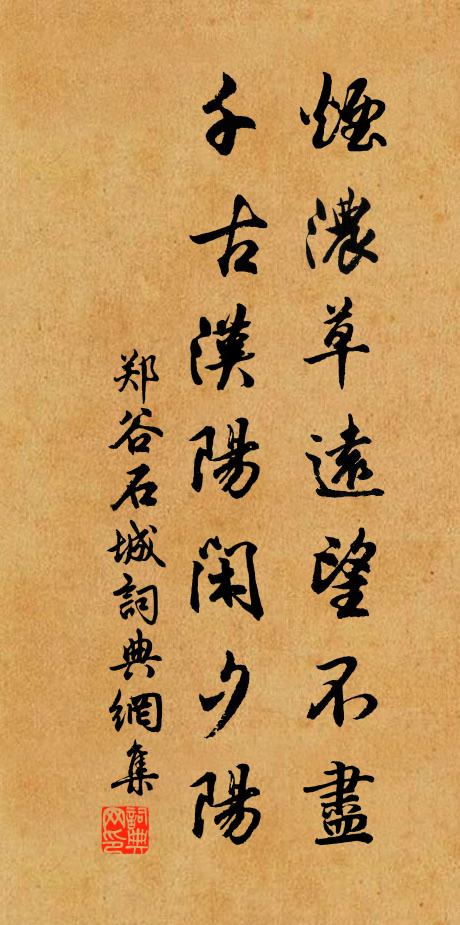 煙濃草遠望不盡
千古漢陽閑夕陽
郑谷石城詞典網集
詞典网印